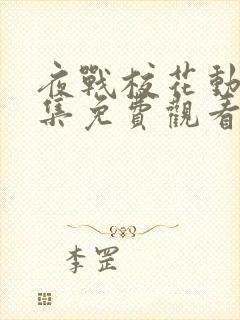 夜戰校花動
集免費觀看
李罡